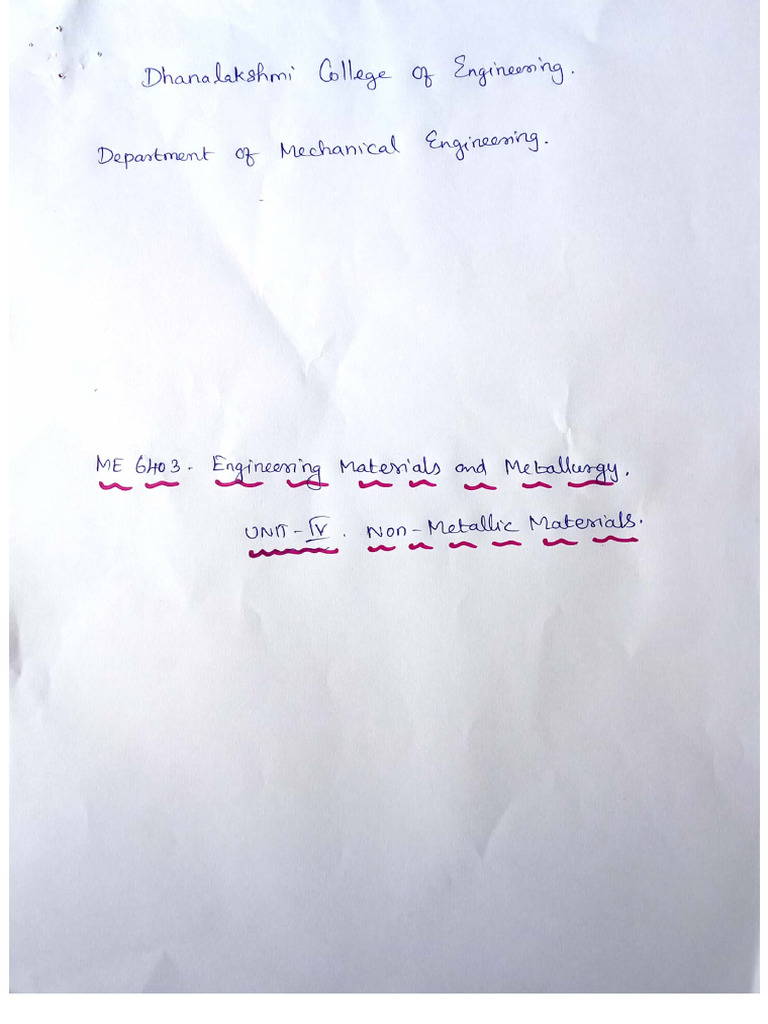 Dhanalakshmi College of Engineering.
Department of Mechanical Engineering.
ME 6403. Engineering Materials and Metallurgy.
UNIT-IV. Non-Metallic Materials.